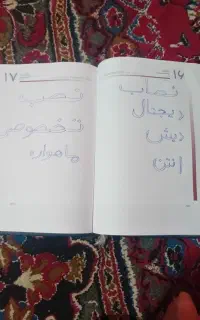 ۱۶
نصاب
دیجتال
دیش
انتن
۱۷
نصب
تخصوصی
ماهواره